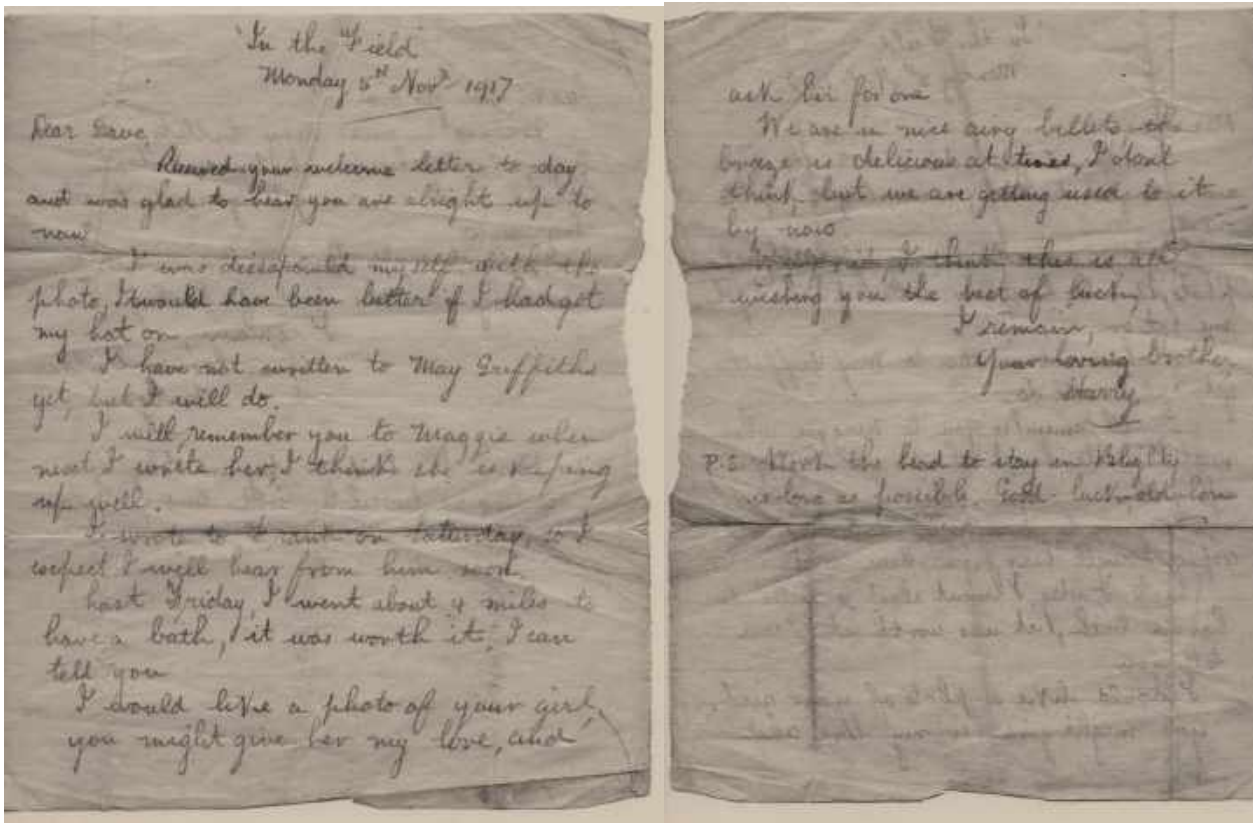 'In the Field'
Monday 5th Novr 1917
Dear Dave,
Received your welcome letter to day
and was glad to hear you are alright up to
now
I was dissapould myself with the
photo, It would have been better if I had got
my hat on
I have not written to May Griffiths
yet, but I will do.
I will remember you to Maggie when
next I write her, I think she is keeping
up well.
I wrote to Frank on Satturday, so I
exspect I will hear from him soon.
Last Friday, I went about 4 miles to
have a bath, it was worth it, I can
tell you
I would like a photo of your girl,
you might give her my love, and
ask her for one
We are in nice airy billets the
breeze is delicious at times, I dont
think, but we are getting used to it
by now
I think this is all
wishing you the best of luck,
I remain,
Your loving brother,
Harry
P.S. Work the head to stay in Blighty
as long as possible. Good luck, old